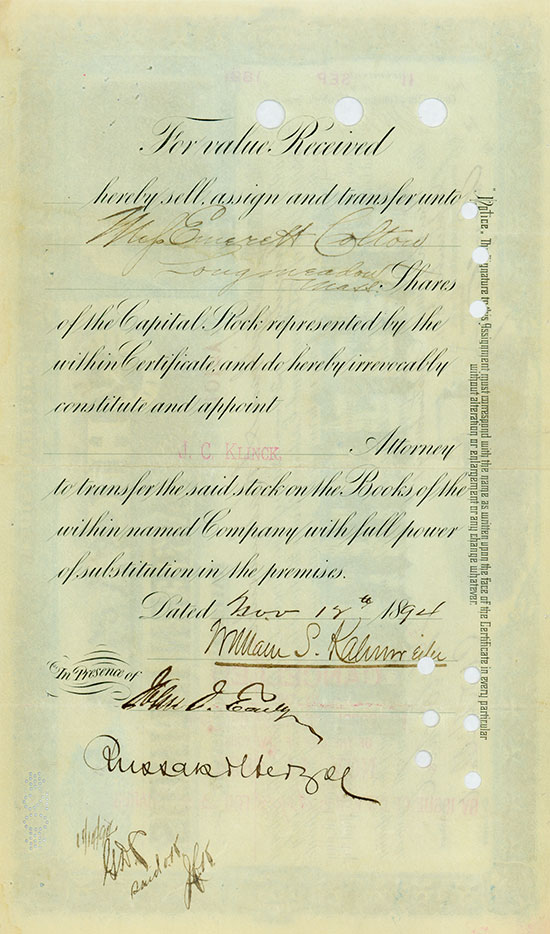 For value Received
hereby sell, assign and transfer unto
Emerett Colton
Longmeadow
Mass. Shares
of the Capital Stock represented by the
within Certificate, and do hereby irrevocably
constitute and appoint
J. C. KLINCK. Attorney
to transfer the said stock on the Books of the
within named Company with full power
of substitution in the premises.
Dated Nov 12th 1894
William S. Kahnweiler
In Presence of
John J.
Russak &
Notice. The Signature to this Assignment must correspond with the name as written upon the face of the Certificate in every particular
without alteration or enlargement or any change whatever.